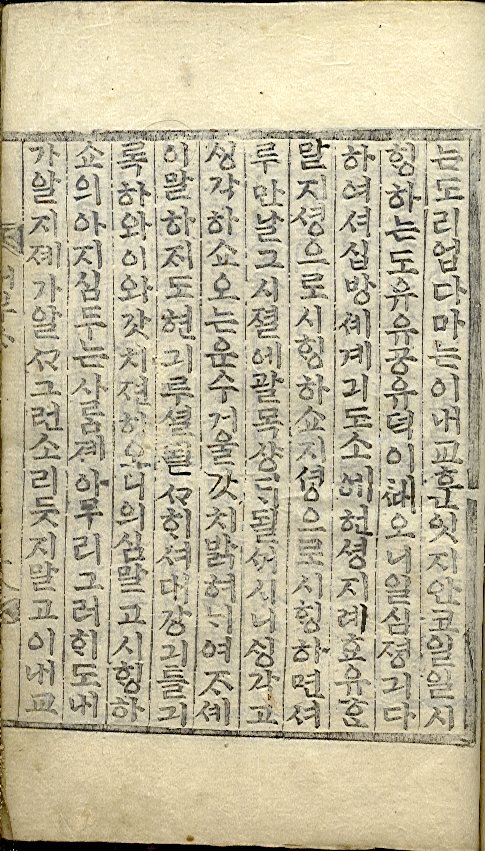 는도리업다마는이내교훈잇지안코일일시
힝하는도유유공유덕이힌오니일심졍긔다
하여셔십방셰계긔도소례헌셩지례호유훈
말지셩으로시힝하쇼지셩으로시힝하면셔
루만날그시졀에괄목상되될ᄭᅥ시니싱각고
싱각하쇼오는운수거울갓치밝혀니여ᄌᆞ셰
이말하ᄌᆡ도현긔루셜될ᄭᅥ히셔대강긔들긔
록하와이와갓치젼하오니의심말고시힝하
쇼의아지심두는사름졔아무리그러히도내
가알지졔가알ᄭᅡ그런소리듯지말고이내교